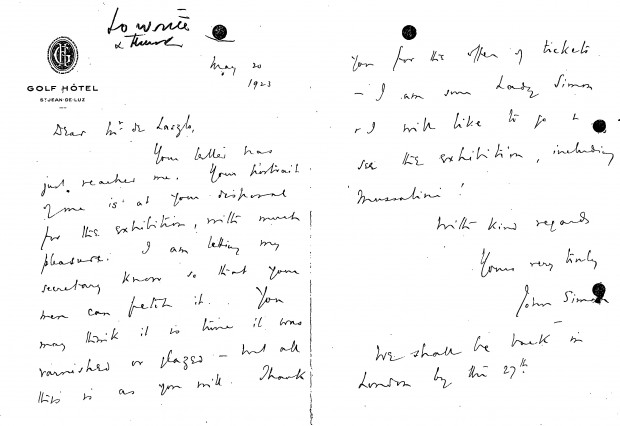 to write
& thank
GH
GOLF HÔTEL
ST JEAN-DE-LUZ
May 20
1923
Dear Mr. de Laszlo,
Your letter has
just reached me. Your portrait
of me is at your disposal
for the exhibition, with much
pleasure. I am letting my
secretary know so that your
men can fetch it. You
may think it is time it was
varnished or glazed – but all
this is as you will. Thank
you for the offer of tickets
– I am sure Lady Simon
& I will like to go &
see the exhibition, including
Mussolini!
With kind regards
Yours very truly
John Simon
We shall be back in
London by the 27th.